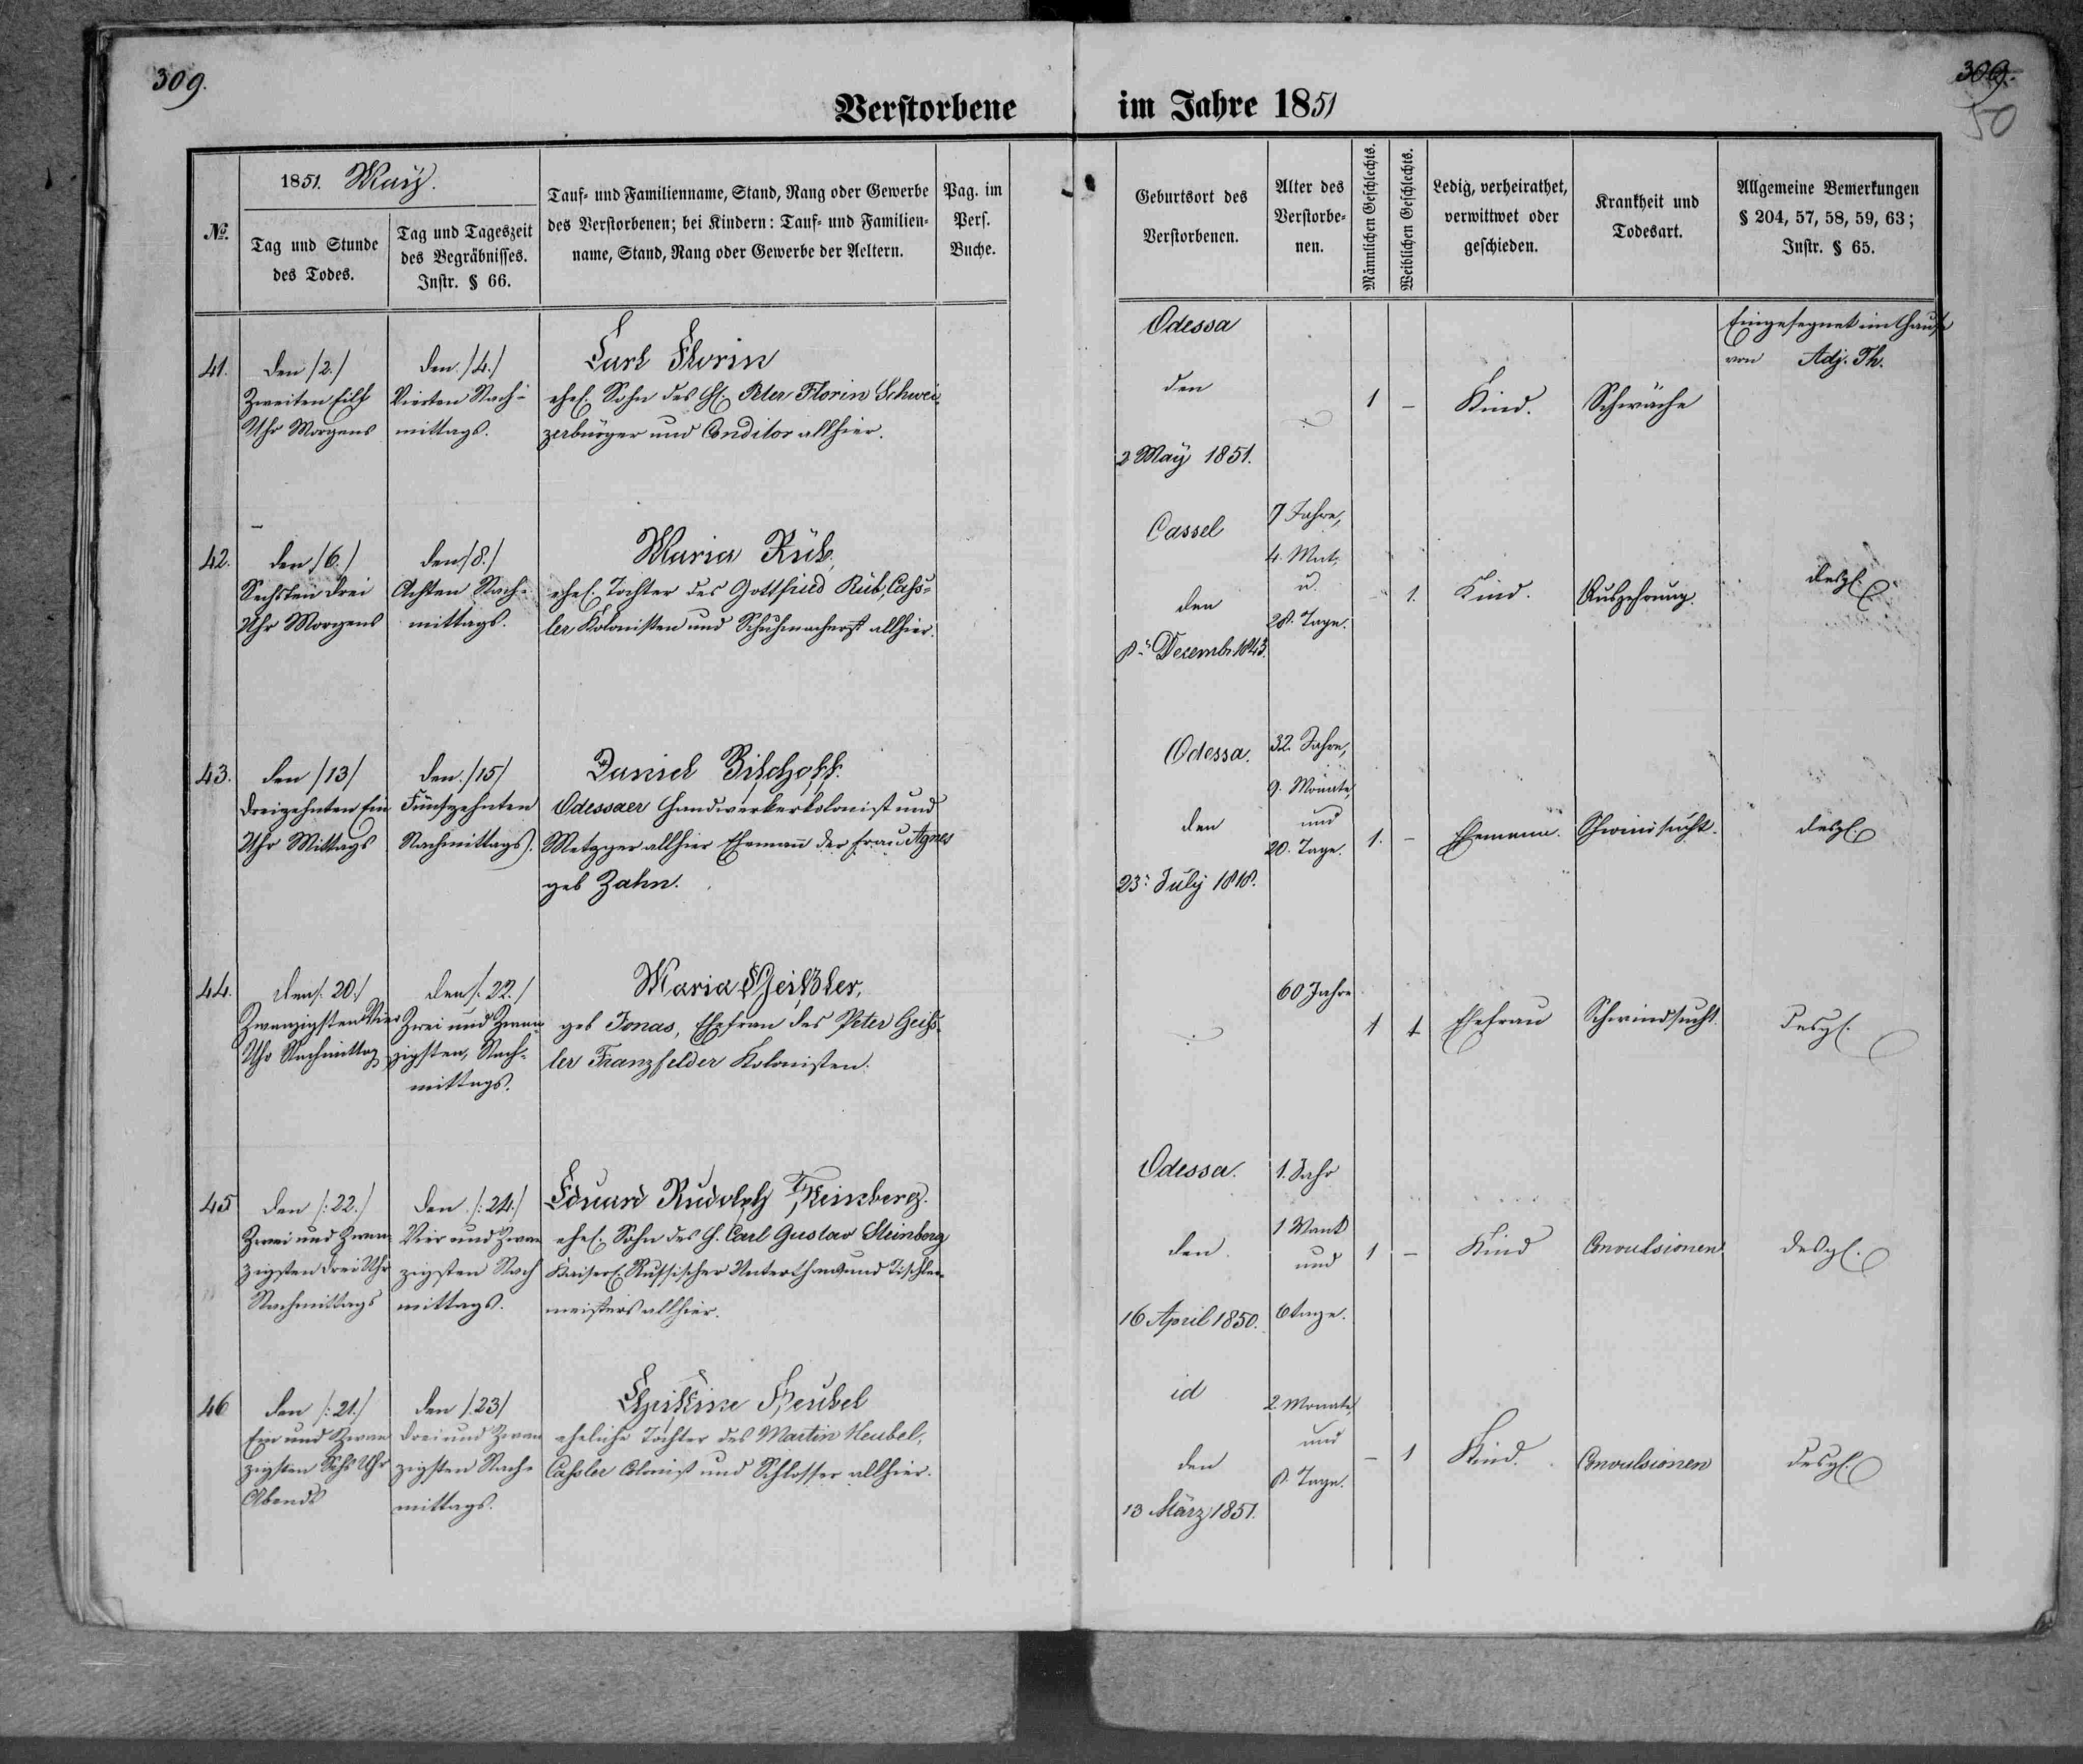 309.
309.
50
Verstorbene im Jahre 1851
№.
1851. May.
Tag und Stunde
des Todes.
Tag und Tageszeit
des Begräbnisses.
Instr. § 66.
Tauf- und Familienname, Stand, Rang oder Gewerbe
des Verstorbenen; bei Kindern: Tauf- und Familien-
name, Stand, Rang oder Gewerbe der Aeltern.
Pag. im
Pers.
Buche.
Geburtsort des
Verstorbenen.
Alter des
Verstorbe-
nen.
Männlichen Geschlechts.
Weiblichen Geschlechts.
Ledig, verheirathet,
verwittwet oder
geschieden.
Krankheit und
Todesart.
Allgemeine Bemerkungen
§ 204, 57, 58, 59, 63;
Instr. § 65.
41.
den /2./
Zweiten Eilf
Uhr Morgens
den /4./
Vierten Nach-
mittags.
Carl Florin
ehel. Sohn des H. Peter Florin Schwei-
zerbürger und Conditor allhier.
Odessa
den
2 May 1851.
1
–
Kind.
Schwäche
Eingesegnet im Hause
von Adj. Th.
42.
den /6./
Sechsten Drei
Uhr Morgens
den /8./
Achten Nach-
mittags.
Maria Rüb,
ehel. Tochter des Gottfried Rüb, Cass-
ler Kolonisten und allhier.
Cassel
den
8. Decemb. 1843.
7 Jahre,
4. Mnt.
u.
28. Tage.
-
1.
Kind.
Auszehrung.
desgl.
43.
den /13/
Dreizehnten Ein
Uhr Mittags
den /15/
Fünfzehnten
Nachmittags.
Daniel Bischoff.
Odessaer Handwerkerkolonist und
Metzger allhier Ehemann der Frau Agnes
geb Zahn.
Odessa.
den
23. July 1818.
32. Jahre,
9. Monate,
und
20. Tage.
1.
–
Ehemann.
Schwindsucht.
desgl.
44.
den /: 20:/
Zwanzigsten Vier
Uhr Nachmittag
den /: 22./
Zwei und Zwan-
zigsten, Nach-
mittags.
Maria Geißler,
geb Jonas, Ehefrau des Peter Geiß-
ler Franzfelder Kolonisten.
60 Jahre
1
1
Ehefrau
Schwindsucht.
desgl.
45
den /: 22./
Zwei und Zwan
zigsten Drei Uhr
Nachmittags
den /: 24./
Vier und Zwan
zigsten Nach
mittags.
Eduard Rudolph Steinberg.
ehel. Sohn des H. Carl Gustav Steinberg
Kaiserl. Russischer Unterthan und Tischler-
meisters allhier.
Odessa.
den.
16 April 1850.
1. Jahr
1 Monat
und
6 Tage.
1
–
Kind
Convulsionen
desgl.
46
den /: 21./
Ein und Zwan
zigsten Sechs Uhr
Abends
den /: 23/
Drei und Zwan
zigsten Nach-
mittags.
Christine Heubel
eheliche Tochter des Martin Heubel,
Cassler Colonist und Schlosser allhier.
id
den
13 März 1851.
2. Monate,
und
8. Tage.
–
1
Kind.
Convulsionen
desgl.